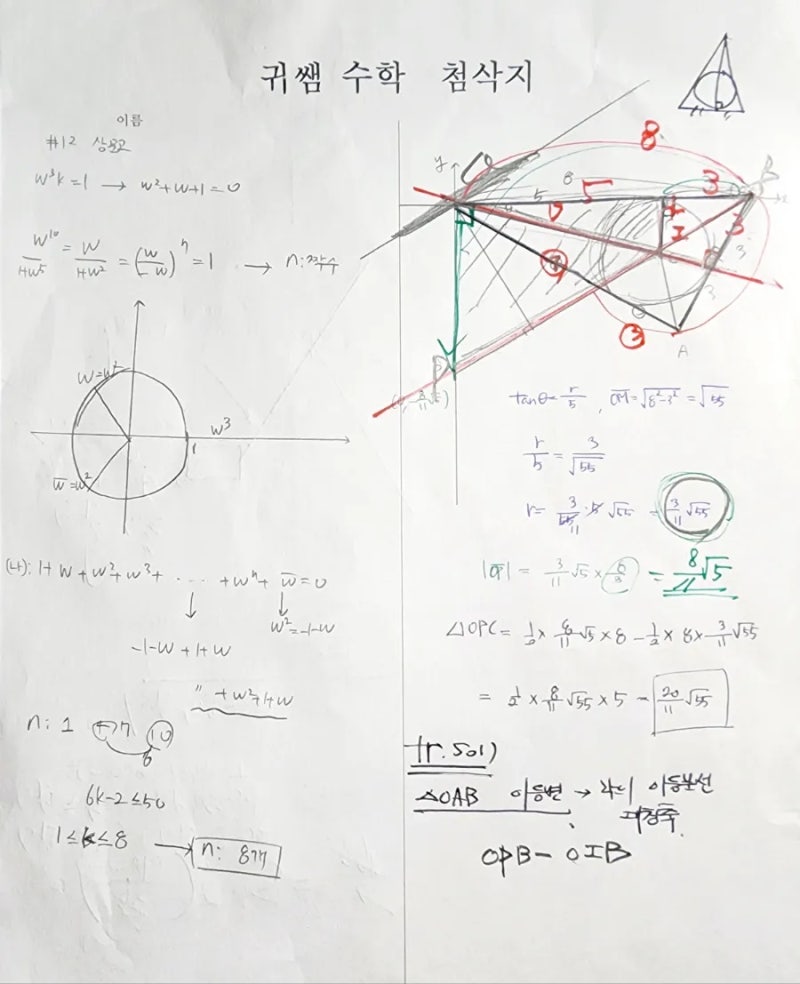 귀쌤 수학 첨삭지
이름
#12 상문고
w³k=1 → w²+w+1=0
w¹⁰/1+w⁵ = w/1+w² = (w/-w)ⁿ=1 → n:짝수
w=w²
w³
1
w̄=w²
(나): 1+w+w²+w³+ ‥ ‥ +wⁿ+w̄=0
w²=-1-w
-1-w+1+w
〃 +w²+1+w
n: 1 10
6
6k-2≤50
1≤k≤8 → n: 8개
y
x
8
8
5
5
3
3
3
3
I
B
A
③
tanθ=r/5, OM=√8²-3²=√55
r/5=3/√55
r=3/55·5√55=3/11√55
|OP|=3/11√5×8/3=8/11√5
△OPC=½×8/11√5×8-½×8×3/11√55
=½×8/11√55×5=20/11√55
tr.sol)
△OAB 이등변 → 각이 이등분선
OPB-OIB